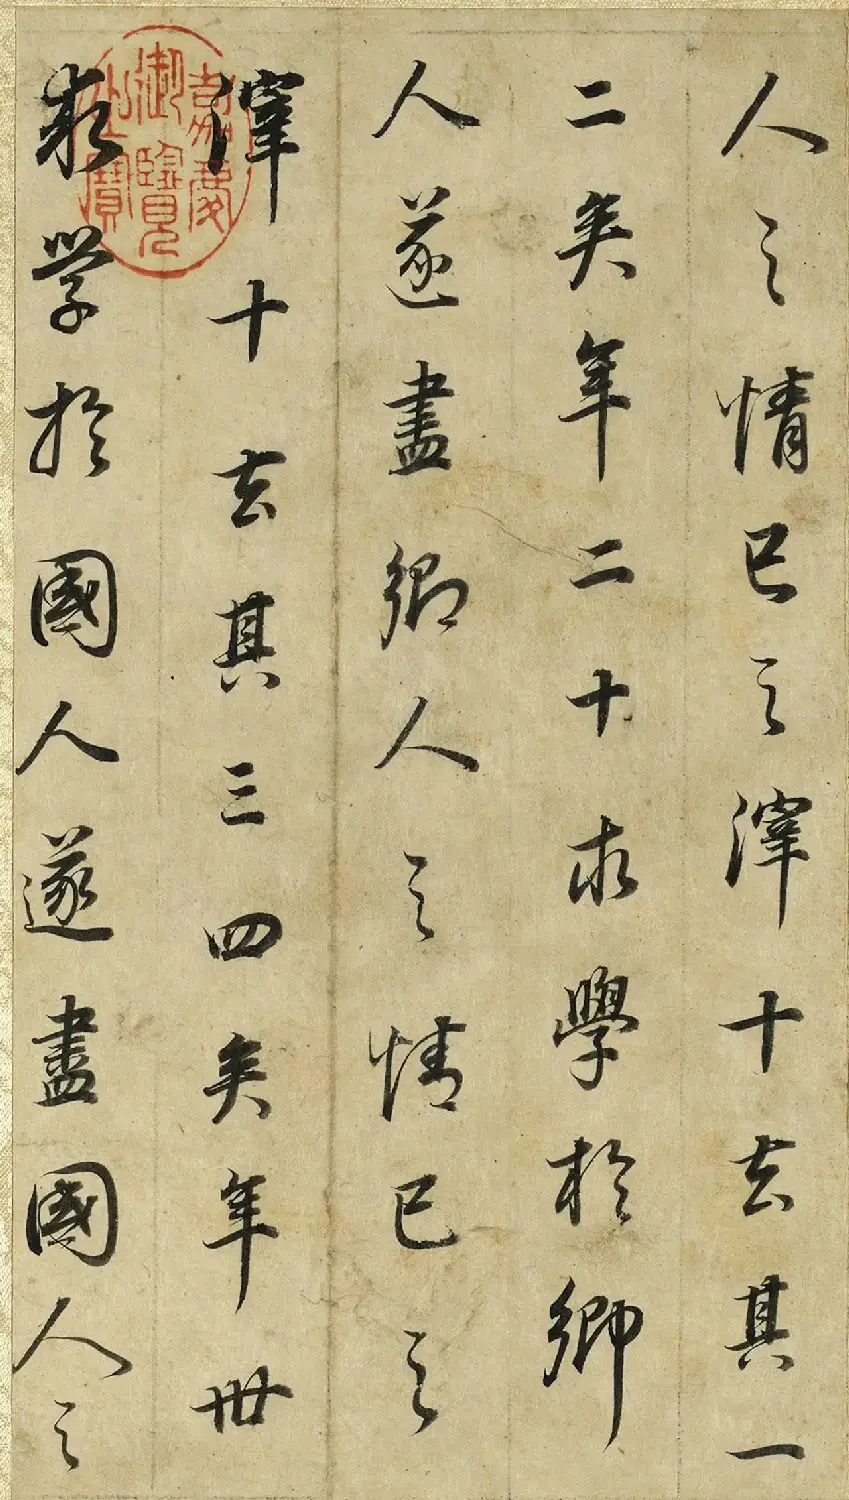 人之情己之滓十去其一
二矣年二十求學於鄉
人遂盡鄉人之情己之
滓十去其三四矣年卅
求学於國人遂盡國人之
嘉慶御覽之寶